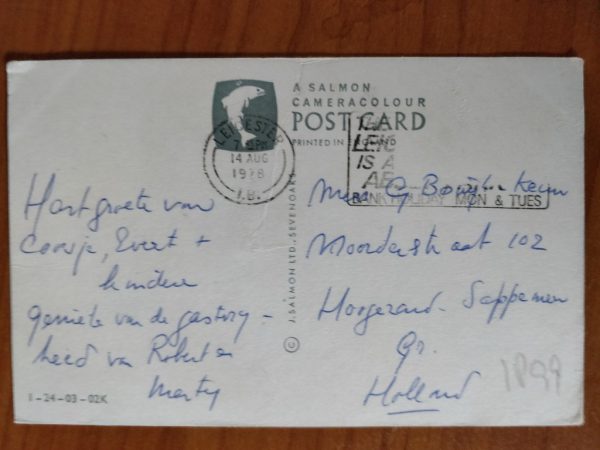 A SALMON
CAMERACOLOUR
POST CARD
PRINTED IN ENGLAND
LEICESTER
PM
14 AUG
1978
I.B.
IS A
BANK HOLIDAY MON & TUES
© J. SALMON LTD., SEVENOAKS
Hart groete van
Coosje, Evert +
kinderen
geniete van de gastvry-
heid van Robert en
Merty
1-24-03-02K
Mevr G.
Noorderstraat 102
Hoogezand-Sappemeer
Gr.
Holland
1899